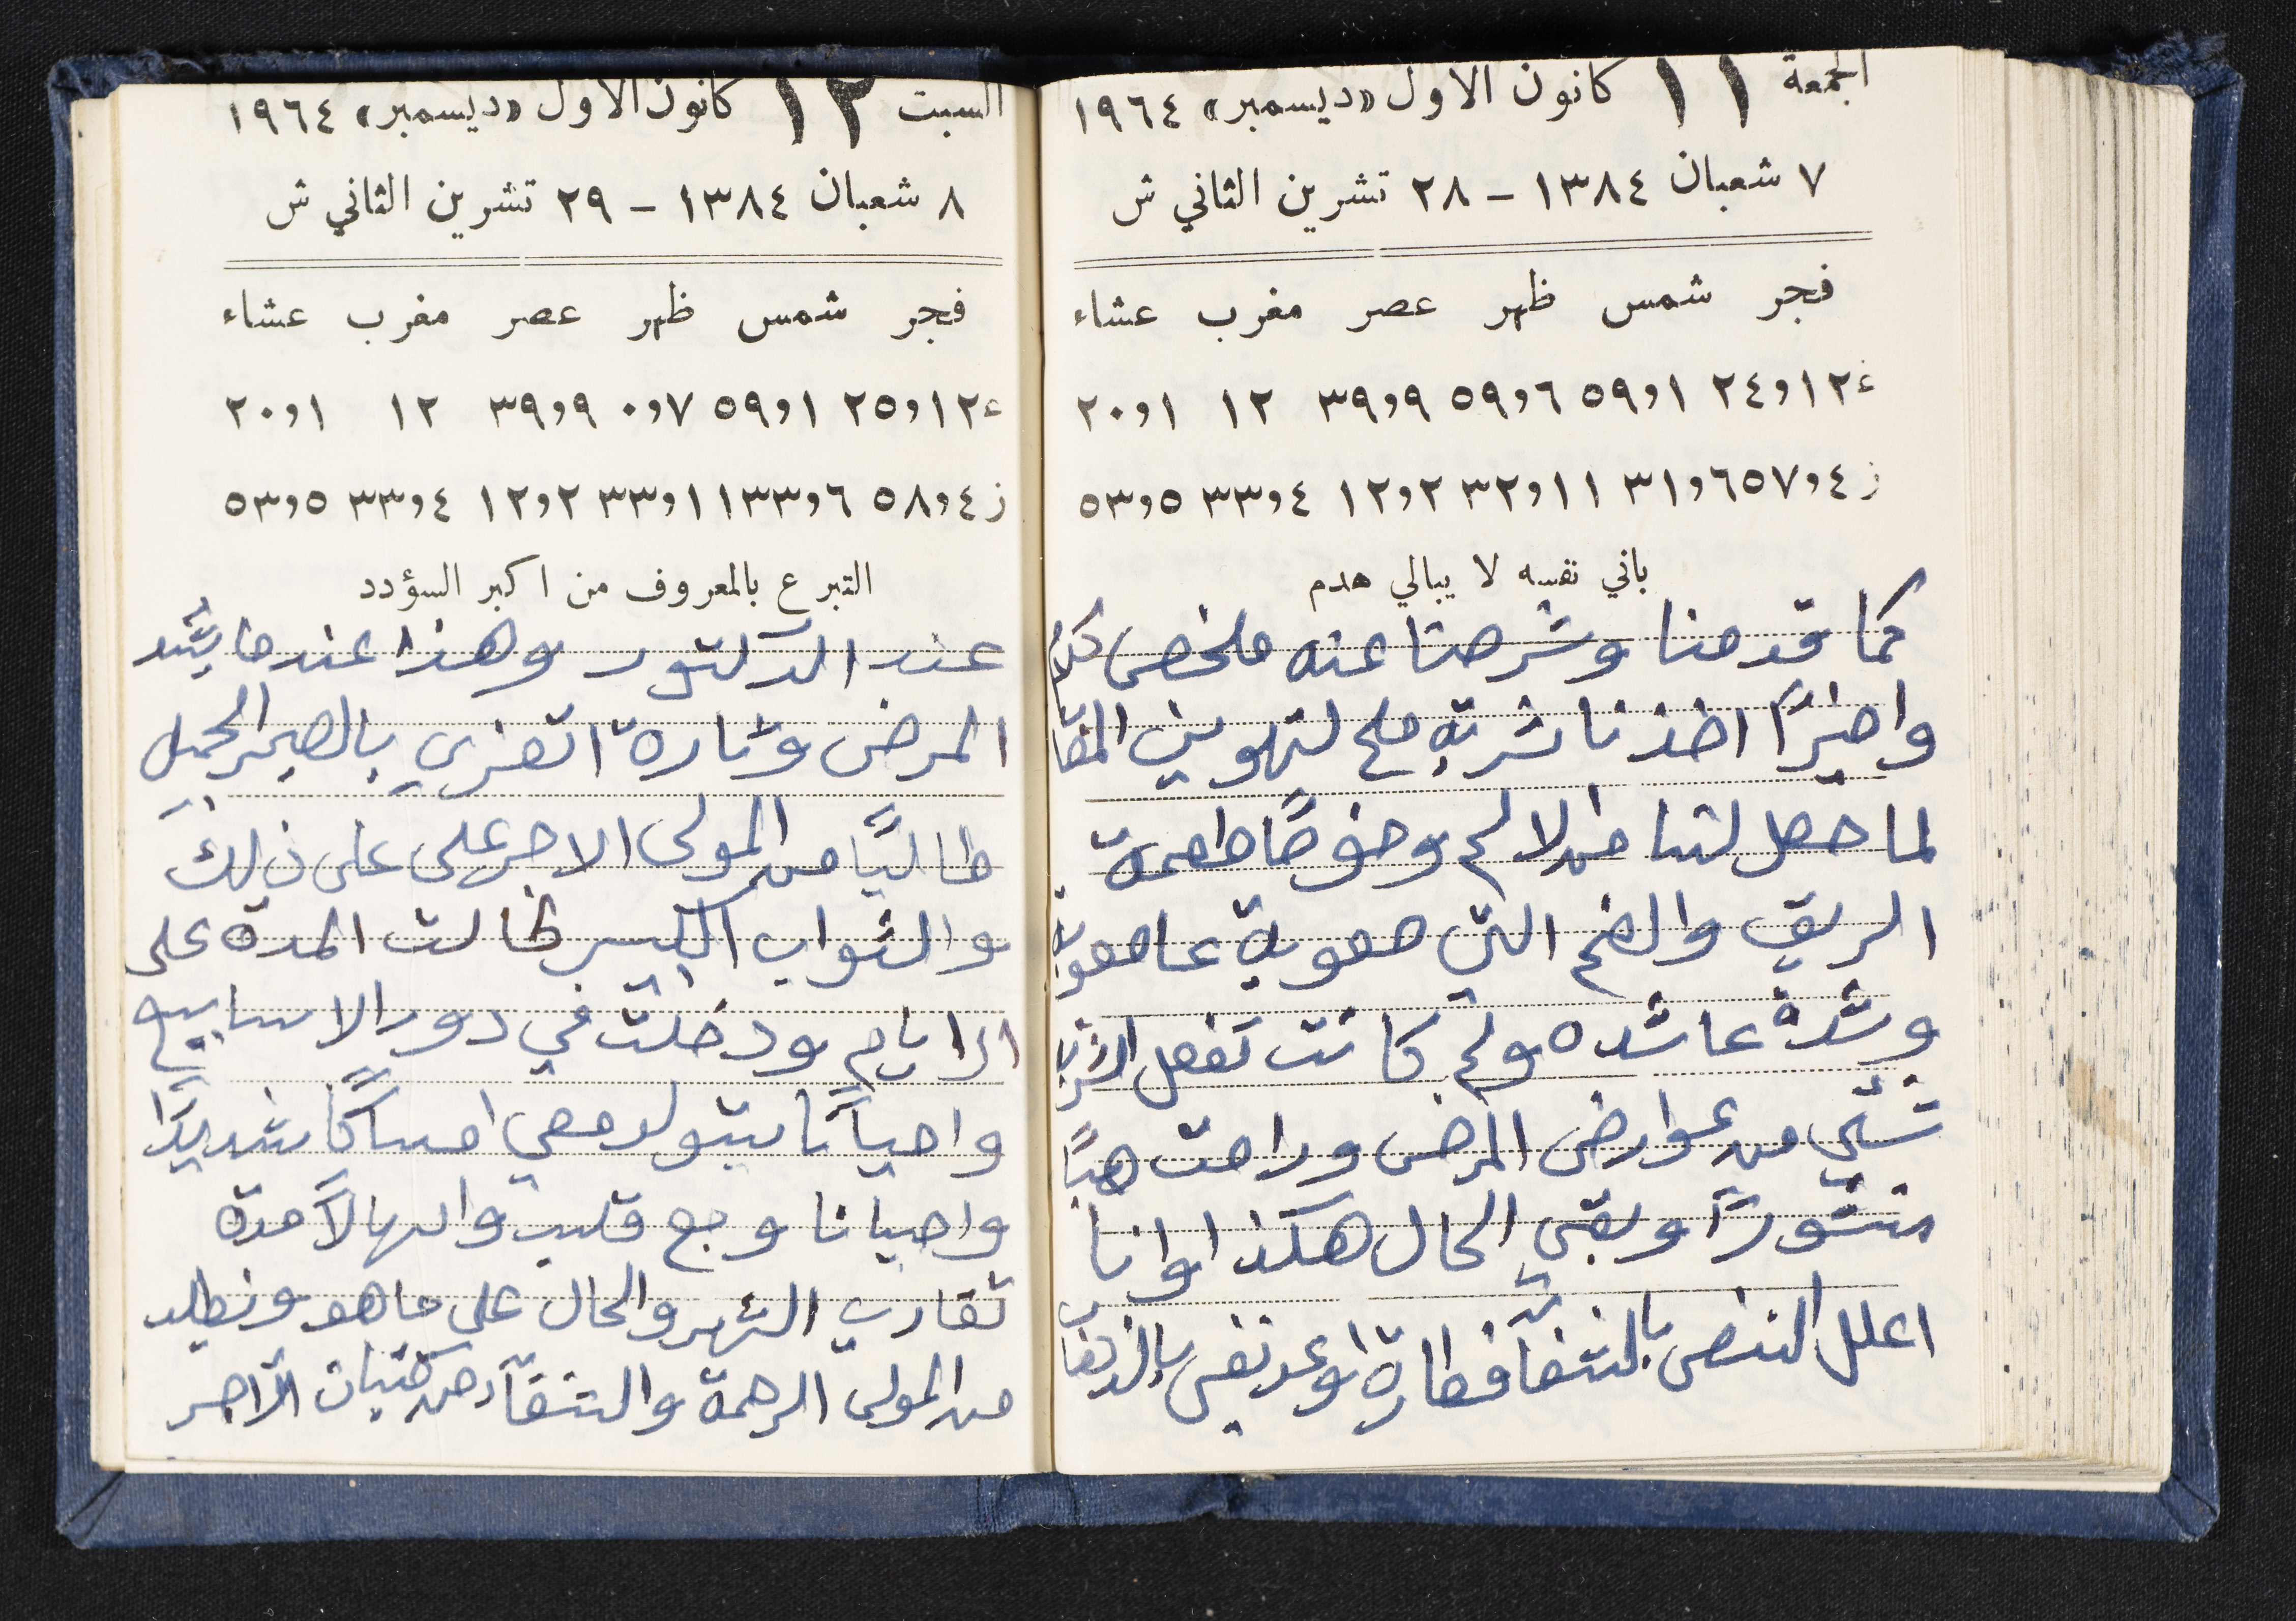 الجمعة ١١ كانون الاول «ديسمبر» ١٩٦٤
٧ شعبان ١٣٨٤ - ٢٨ تشرين الثاني ش
فجر شمس ظهر عصر مغرب عشاء
ع ١٢و٢٤ ١و٥٩ ٦و٥٩ ٩و٣٩ ١٢ ١و٢٠
ز ٤و٥٧ ٦و٣١ ١١و٣٢ ٢و١٢ ٤و٣٣ ٥و٥٣
باني نفسه لا يبالي هدم
كما قدمنا وشرحنا عنه ملخص
واخيرًا اخذنا شربة ملح لتهوين
لما حصل لنا من الالم وخوصًا طعمة
الريق والفم التي صعوبة عا صعوبة
وشدة عا شده ولم كانت تفعل الشربة
شئي من عوارض المرض وراحت هبًا
منثورًا وبقي الحال هكذا وانا
اعلل النفس بالشفآ فطارة اوعد نفسي بالذهاب
السبت ١٢ كانون الاول «ديسمبر» ١٩٦٤
٨ شعبان ١٣٨٤ - ٢٩ تشرين الثاني ش
فجر شمس ظهر عصر مغرب عشاء
ع ١٢و٢٥ ١و٥٩ ٧و٠ ٩و٣٩ ١٢ ١و٢٠
ز ٤و٥٨ ٦و٣٣ ١١و٣٣ ٢و١٢ ٤و٣٣ ٥و٥٣
التبرع بالمعروف من اكبر السؤدد
عند الدكتور وهذا عندما يشتد
المرض وتارة اتعزي بالصبر الجميل
طالبًا من المولى الاجر على ذلك
والثواب الكبير طالت المدة على
الايام ودخلت في دور الاسابيع
واحيانًا يتولد معي امساكًا شديدًا
واحيانا وجع قلب واسهالًا مدة
تقارب الشهر والحال على ما هو ونطلب
من المولى الرحمة والشفآ